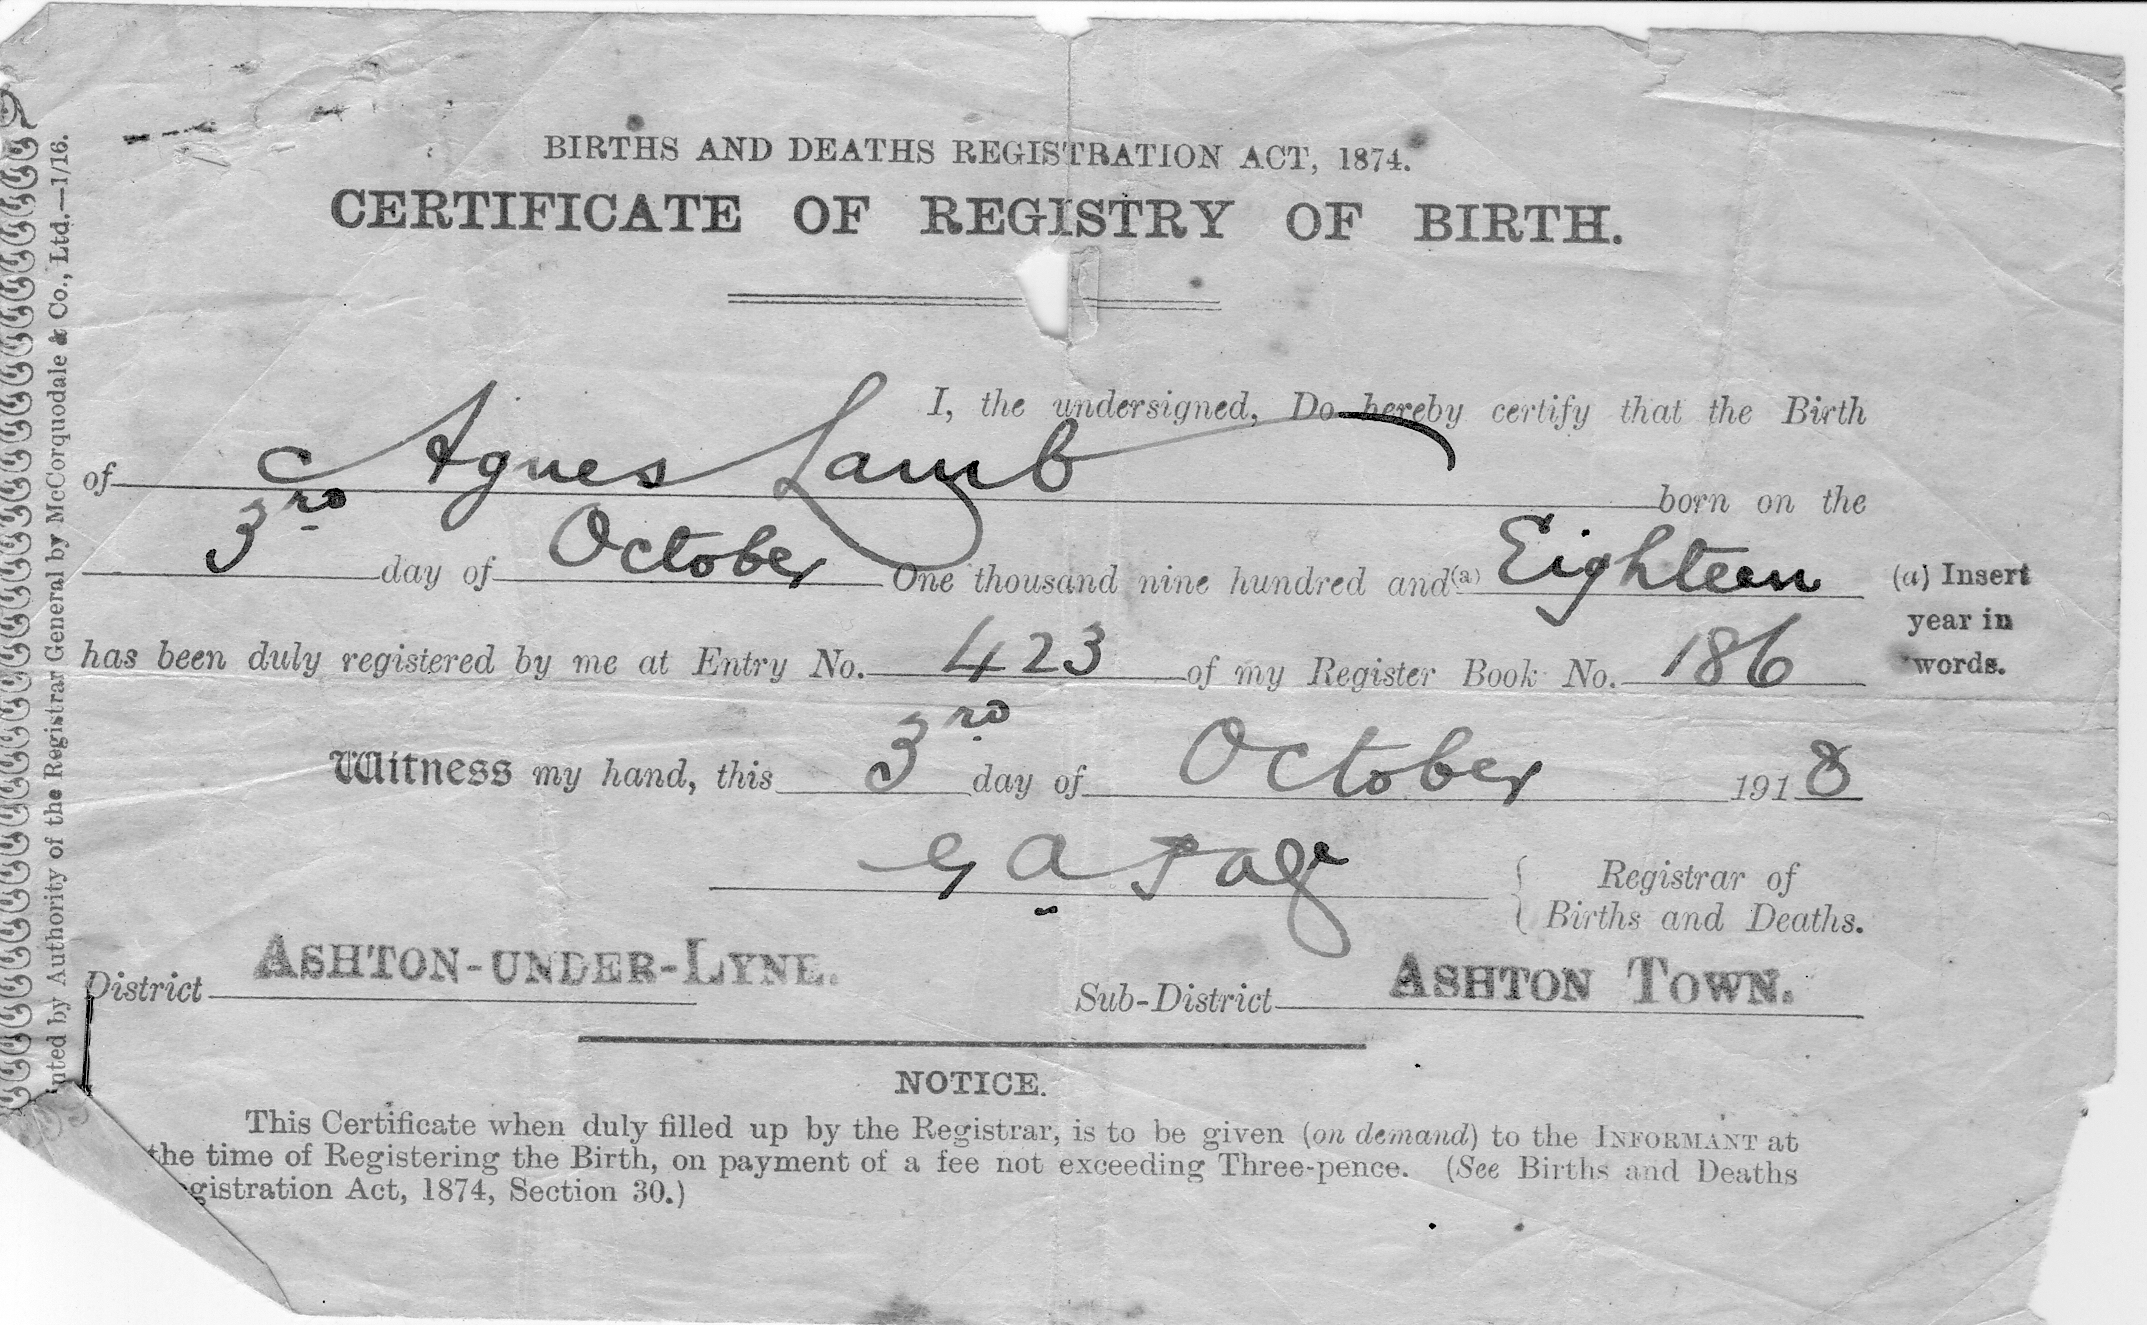 BIRTHS AND DEATHS REGISTRATION ACT, 1874.
CERTIFICATE OF REGISTRY OF BIRTH.
I, the undersigned, Do hereby certify that the Birth
of Agnes Lamb born on the
3rd day of October One thousand nine hundred and (a) Eighteen
(a) Insert year in words.
has been duly registered by me at Entry No. 423 of my Register Book No. 186
Witness my hand, this 3rd day of October 1918
G A Page Registrar of Births and Deaths.
District ASHTON-UNDER-LYNE. Sub-District ASHTON TOWN.
NOTICE.
This Certificate when duly filled up by the Registrar, is to be given (on demand) to the INFORMANT at
the time of Registering the Birth, on payment of a fee not exceeding Three-pence. (See Births and Deaths
gistration Act, 1874, Section 30.)
nted by Authority of the Registrar General by McCorquodale & Co., Ltd.—1/16.